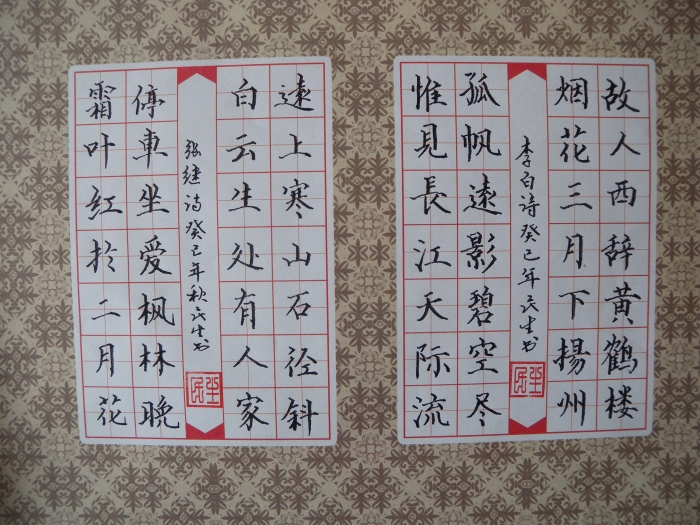 故人西辞黄鶴楼
烟花三月下揚州
李白诗癸巳年民生书
孤帆遠影碧空尽
惟見長江天际流
遠上寒山石径斜
白云生处有人家
张继诗癸巳年秋民生书
停車坐爱枫林晚
霜叶红於二月花